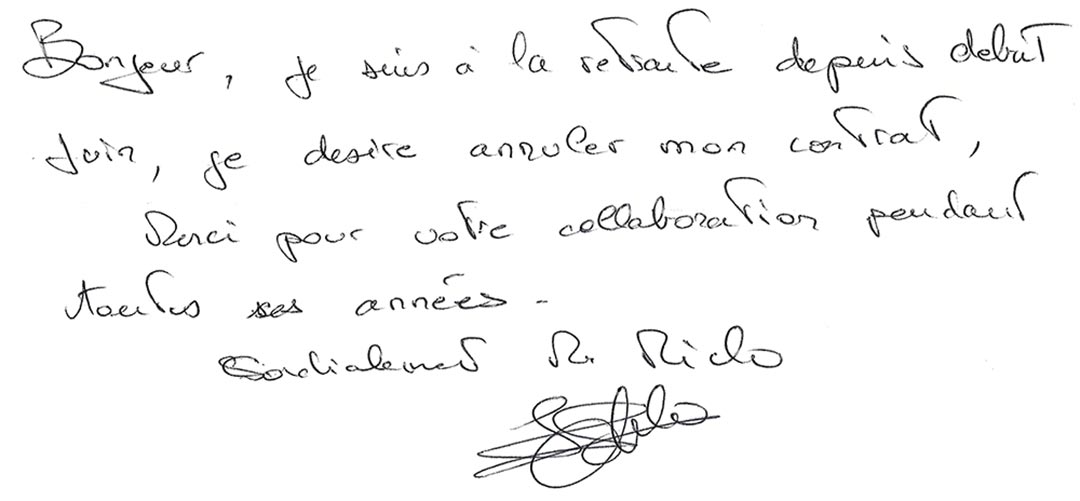 Bonjour, je suis à la retraite depuis debut
Juin, je desire annuler mon contrat,
Merci pour votre collaboration pendant
toutes ses années -
Cordialement M. Mido